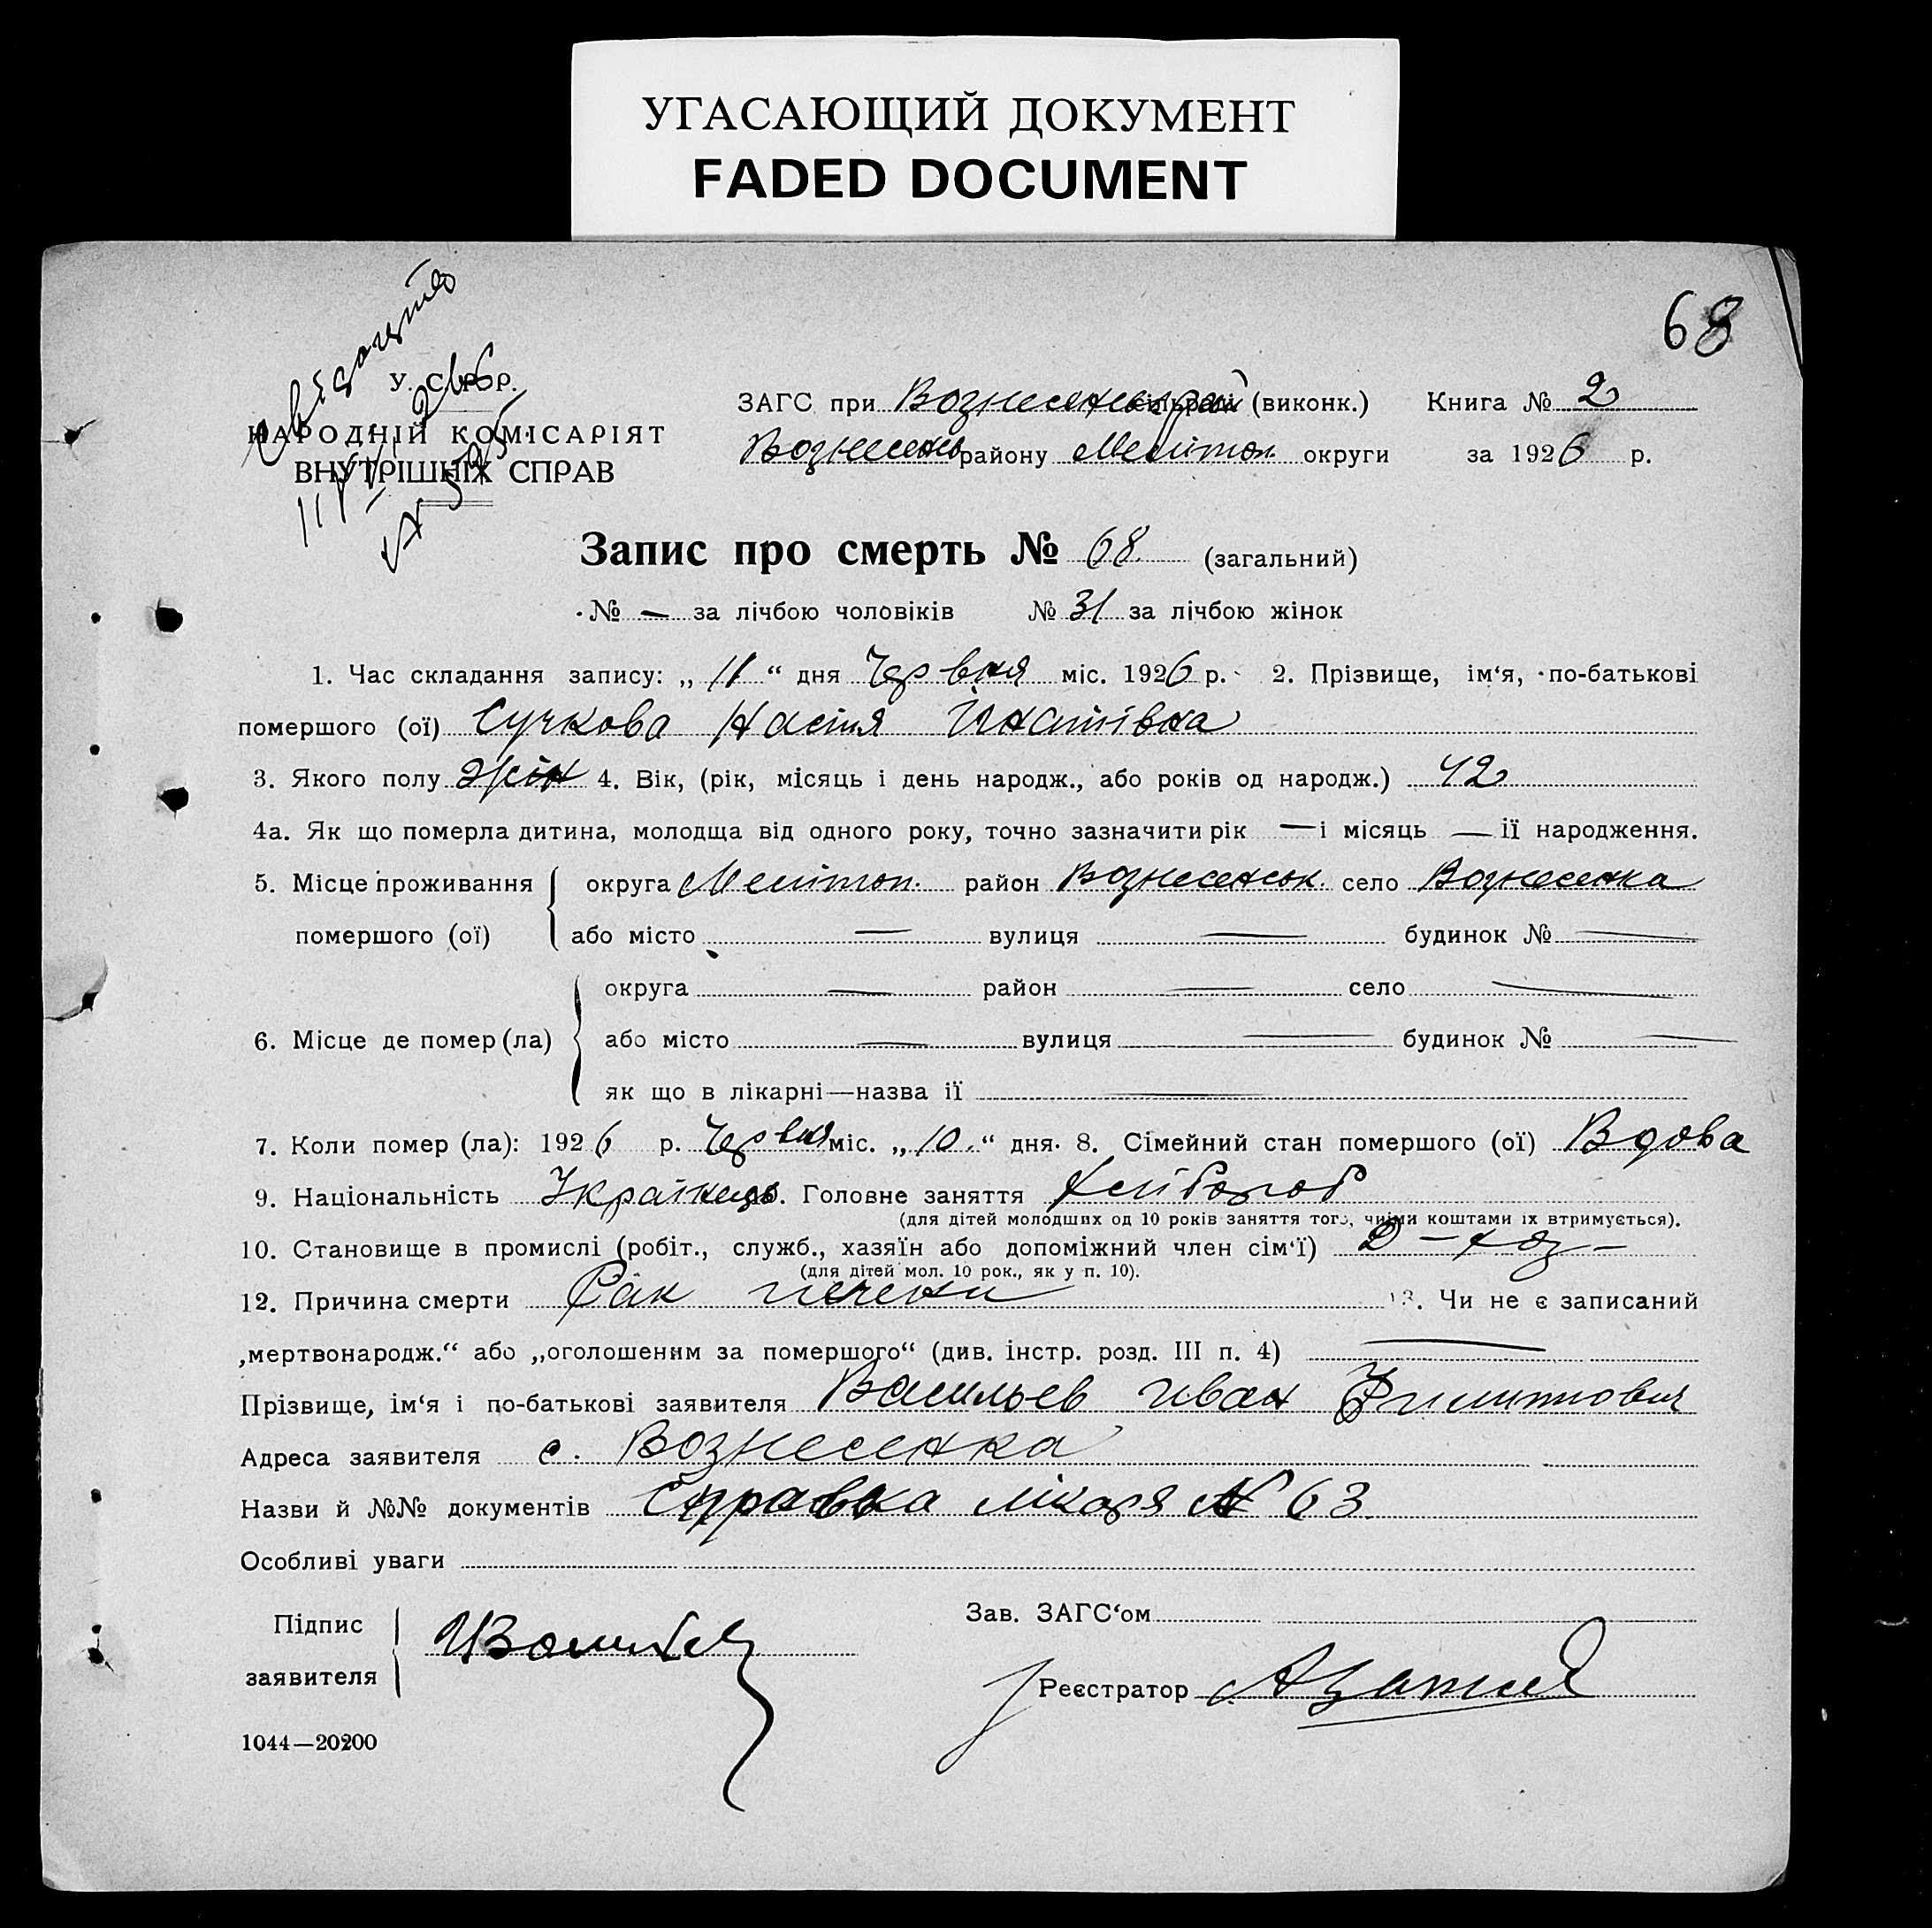 УГАСАЮЩИЙ ДОКУМЕНТ
FADED DOCUMENT
68
У. С. Р. Р.
НАРОДНІЙ КОМІСАРІЯТ
ВНУТРІШНІХ СПРАВ
ЗАГС при (виконк.) Книга № 2
Вознесенс району Мелітоп. округи за 1926 р.
Запис про смерть № 68 (загальний)
№ — за лічбою чоловіків № 31 за лічбою жінок
1. Час складання запису: „11“ дня Червня міс. 1926 р. 2. Прізвище, ім‘я, по-батькові
помершого (ої) Сучкова Настя
3. Якого полу жін 4. Вік, (рік, місяць і день народж., або років од народж.) 42
4а. Як що померла дитина, молодща від одного року, точно зазначити рік — і місяць — її народження.
5. Місце проживання округа Мелітоп. район Вознесенськ. село Вознесенка
помершого (ої) або місто — вулиця — будинок № —
округа — район — село —
6. Місце де помер (ла) або місто — вулиця — будинок № —
як що в лікарні—назва її —
7. Коли помер (ла): 1926 р. Червня міс. „10.“ дня. 8. Сімейний стан помершого (ої) Вдова
9. Національність Українець. Головне заняття Хлібороб
(для дітей молодших од 10 років заняття того, чиїми коштами їх втримується).
10. Становище в промислі (робіт., служб., хазяїн або допоміжний член сім‘ї)
(для дітей мол. 10 рок., як у п. 10).
12. Причина смерти Рак печени 13. Чи не є записаний
„мертвонародж.“ або „оголошеним за помершого“ (див. інстр. розд. III п. 4) —
Прізвище, ім‘я і по-батькові заявителя Васильев Иван Филиппович
Адреса заявителя с. Вознесенка
Назви й №№ документів Справка лікаря № 63
Особливі уваги
Підпис
заявителя
Зав. ЗАГС‘ом
Реєстратор
1044—20200